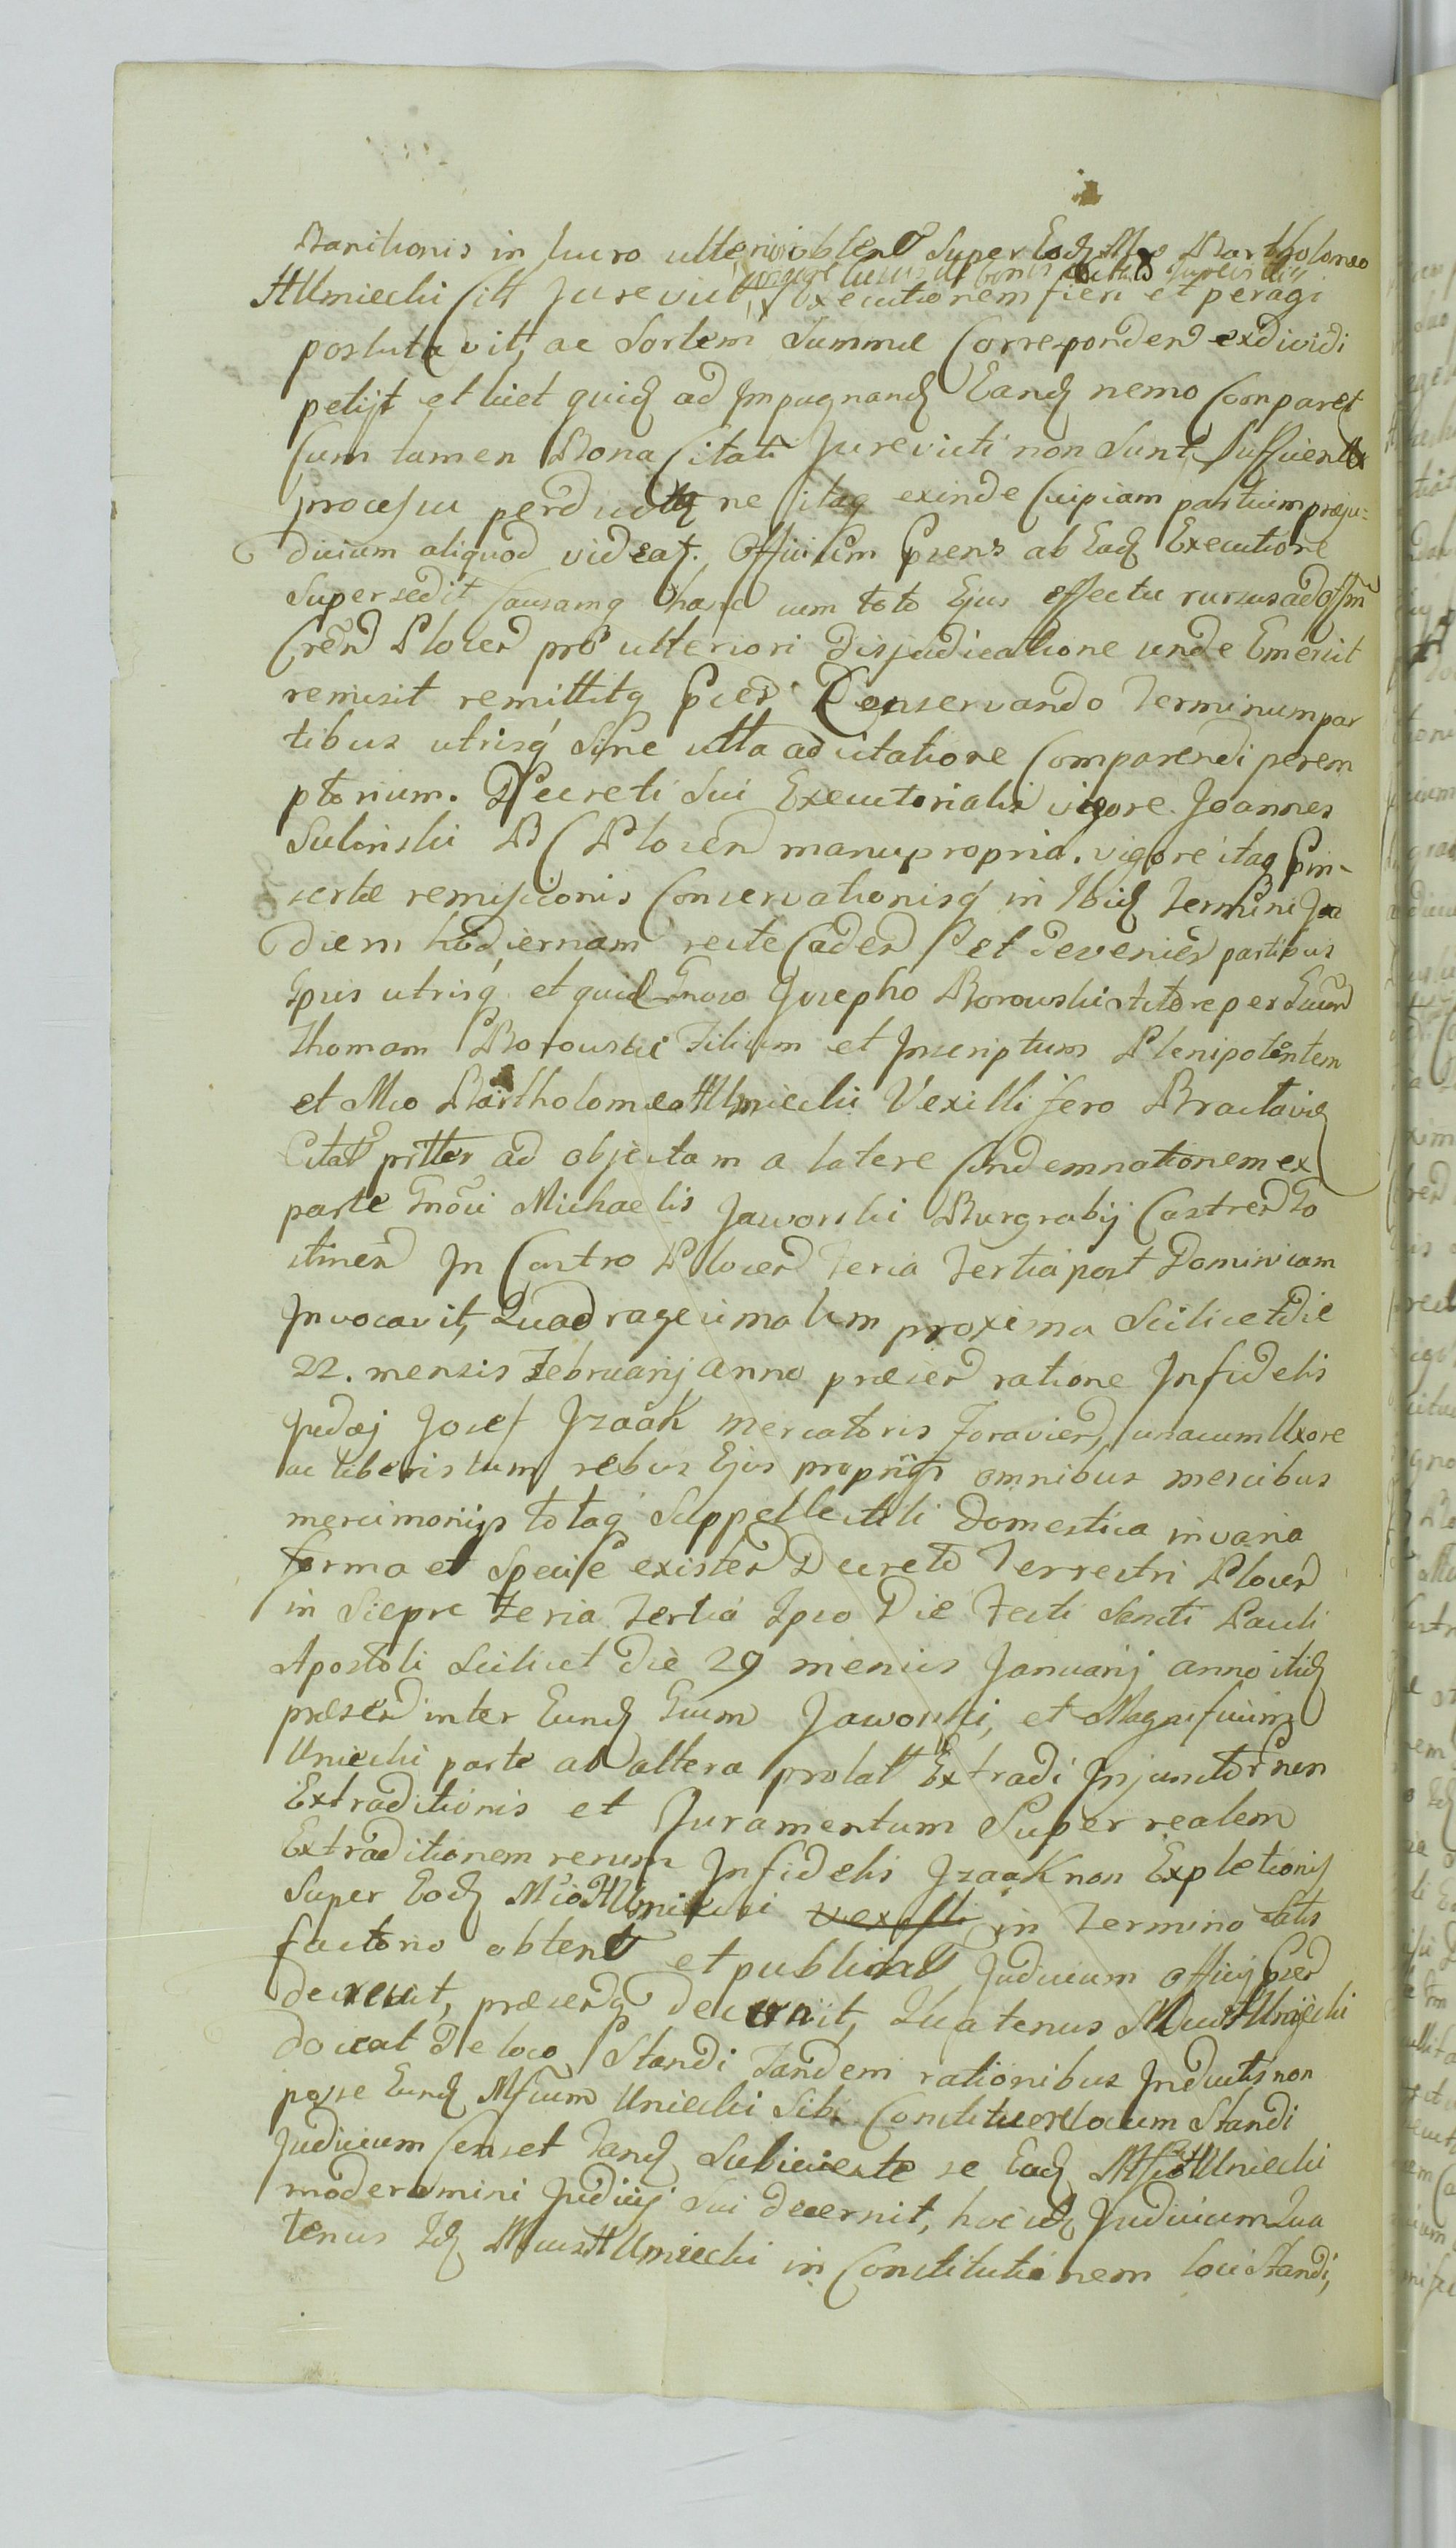 Banitionis in lucro ulteriori obtent Super Eodq Mco Bartholomeo
H Uniecki Citt Jurevict Executionem fieri et peragi
postulavit, ac Sortem Summae Corresponden exdividi
petijt et licet quidq ad Impugnandq Eandq nemo Comparet
Cum tamen Bona Citati Jurevicti non Sunt Sufficienti
processu perducta ne itaq exinde Cuipiam partium praeju=
dicium aliquod videat. Officium praens ab Eadq Executione
Supersedit Causamq hanc cum toto Ejus effectu rursus ad Offm
Cren Plocen pro ulteriori disjudicatione unde Emersit
remisit remittitq Conservando Terminum par
tibus utrisq Sine ulla adcitatione Comparendi perem
ptorium. Decreti Sui Executorialis vigore Joannes
Sulinski B C Plocen manu propria. vigore itaq
sertae remissionis Conservationisq in Ibidq Termini
diem hodiernam recte Caden et devenien partibus
Ipsis utrisq et quidq Gnoso Josepho Borowski Actore per
Thomam Borowski Filium et Inscriptum Plenipotentem
et Mco Bartholomeo H Uniecki Vexillifero Braclavien
Citat prtter ad objectam a latere Condemnationem ex
parte Gnosi Michaelis Jaworski Burgrabij Castren Go
stinen In Castro Plocen Feria Tertia post Dominicam
Invocavit, Quadragesimalem proxima Scilicet die
22. mensis Februarij anno praesen ratione Infidelis
Judaej Josef Jzaak mercatoris unacum Uxore
ac liberis tum rebus Ejus proprijs omnibus mercibus
mercimonijs totaq Suppellectili domestica in varia
forma et Specie existen Decreto Terrestri Plocen
in Sierpc Feria Tertia Ipso Die Festi Sancti Pauli
Apostoli Scilicet die 29 mensis Januarij anno itidq
praesen inter Eundq Gsum Jaworski, et Magnificum
Uniecki parte ab altera prolat Extradi Injunctor non
Extraditionis et Juramentum Super realem
Extraditionem rerum Infidelis Jzaak non Expletionis
Super Eodq Mco H Uniecki in Termino Satis
factorio obtent et publicat Judicium Officij
decrevit, praesenq decernit, Quatenus Mcus H Uniecki
doceat De loco Standi Tandem rationibus Inductis non
posse Eundq Mficum Uniecki Sibi Constituere locum Standi
Judicium Censet Tandq Subiiciente se Eodq Mfco H Uniecki
moderamini Judicij Sui decernit, hoc idq Judicium Qua
tenus Idq Mcus H Uniecki in Constitutionem loci Standi,